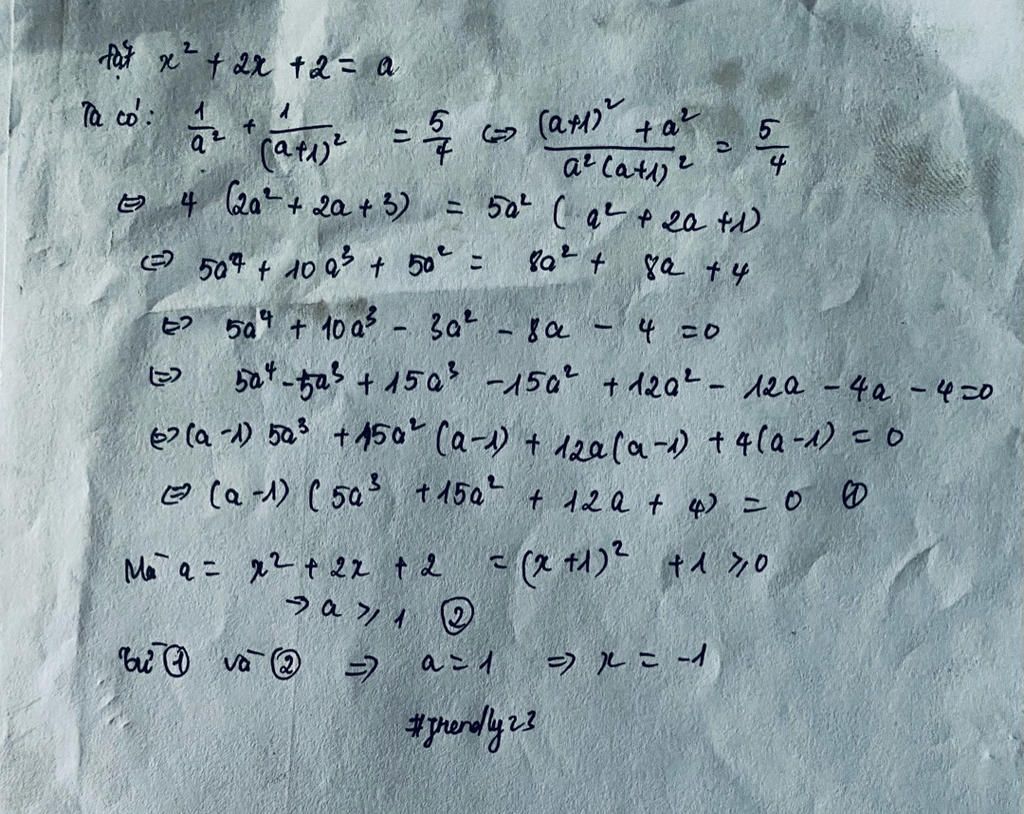 Đặt x² + 2x + 2 = a
Ta có: 1/a² + 1/(a+1)² = 5/4 ⇔ ((a+1)² + a²)/(a²(a+1)²) = 5/4
⇔ 4 (2a² + 2a + 3) = 5a² (a² + 2a + 1)
⇔ 5a⁴ + 10a³ + 5a² = 8a² + 8a + 4
⇔ 5a⁴ + 10a³ - 3a² - 8a - 4 = 0
⇔ 5a⁴ - 5a³ + 15a³ - 15a² + 12a² - 12a - 4a - 4 = 0
⇔ (a-1) 5a³ + 15a² (a-1) + 12a(a-1) + 4(a-1) = 0
⇔ (a-1) (5a³ + 15a² + 12a + 4) = 0 ①
Mà a = x² + 2x + 2 = (x+1)² + 1 ⩾ 0
→ a ⩾ 1 ②
Từ ① và ② ⇒ a = 1 ⇒ x = -1